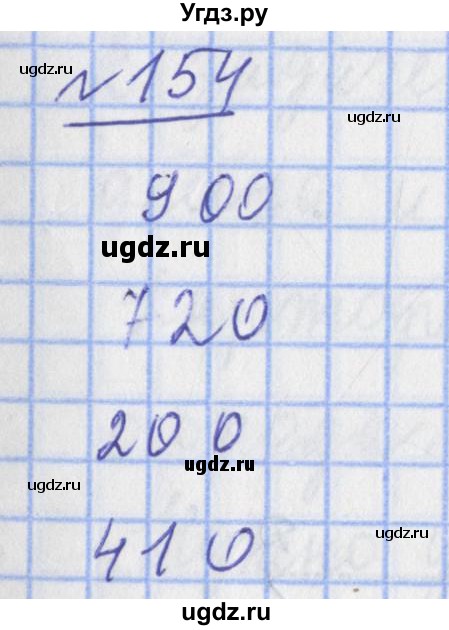 Угдз.ру
ugdz.ru
№ 154
ugdz.ru
900
ugdz.ru
720
200
ugdz.ru
ugdz.ru
410
ugdz.ru
ugdz.ru